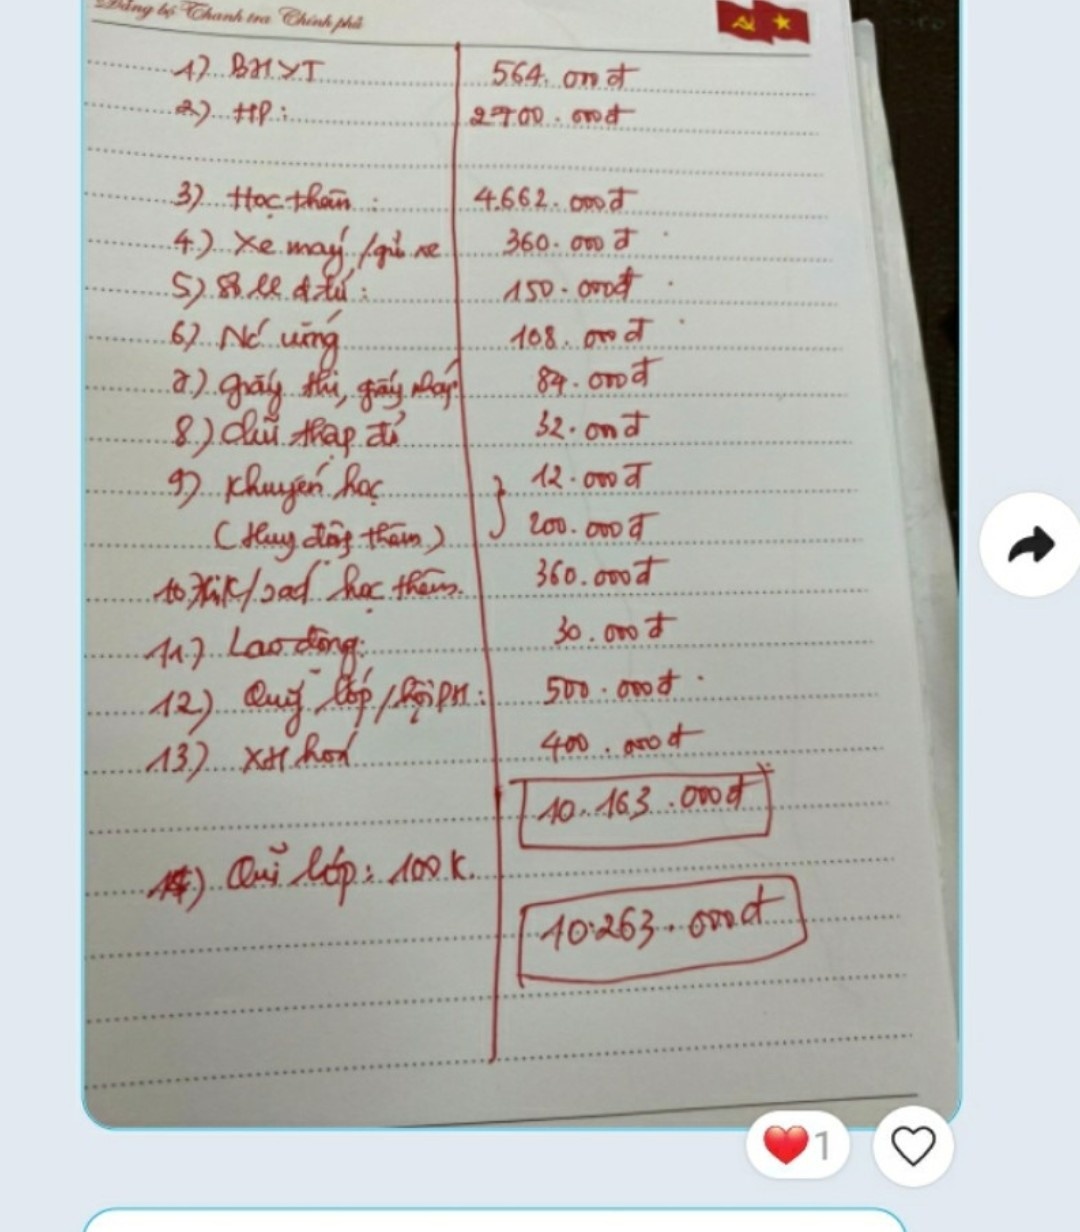 Đảng bộ Thanh tra Chính phủ
1) BHYT 564.000đ
2) HP: 2700.000đ
3) Học thêm: 4.662.000đ
4.) Xe máy/gửi xe 360.000đ
5) đ.tử: 150.000đ
6) Nc' uống 108.000đ
7.) giấy thi, giấy nháp 84.000đ
8.) chữ thập đỏ 32.000đ
9) Khuyến học 12.000đ
(Huy động thêm) 200.000đ
10) học thêm. 360.000đ
11.) Lao động: 30.000đ
12) Quỹ lớp/hội PH: 500.000đ
13.) XH hoá 400.000đ
10.163.000đ
14) Quĩ lớp: 100K.
10.263.000đ
1